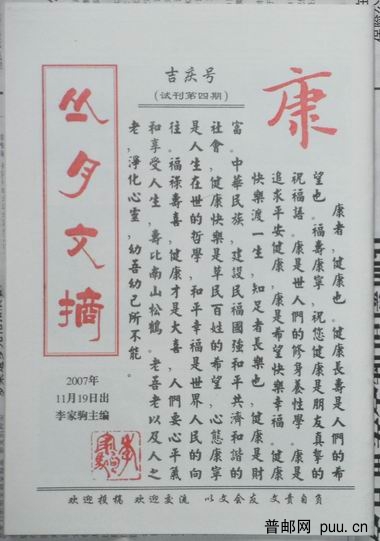 吉庆号
(试刊第四期)
康
丛月文摘
康者,健康也。健康長壽是人們的希
望也。福壽康寧,祝您健康是朋友真摯的
祝福語。康是世人們的修身養性學。康是
追求平安健康,康是希望快樂幸福。健康
快樂渡一生,知足者長樂也,健康是財
富。中華民族,建設民福國強和平共濟和諧的
社會,健康快樂是草民百姓的希望,心態康寧
是人生在世的哲學,和平幸福是世界人民的向
往。福祿壽喜,健康才是大喜,人們要心平氣
和享受人生,壽比南山松鶴。老吾老以及人之
老,淨化心靈,幼吾幼己所不能。
2007年
11月19日出
李家驹主编
欢迎投稿 欢迎交流 以文会友 文责自负
普邮网 puu.cn